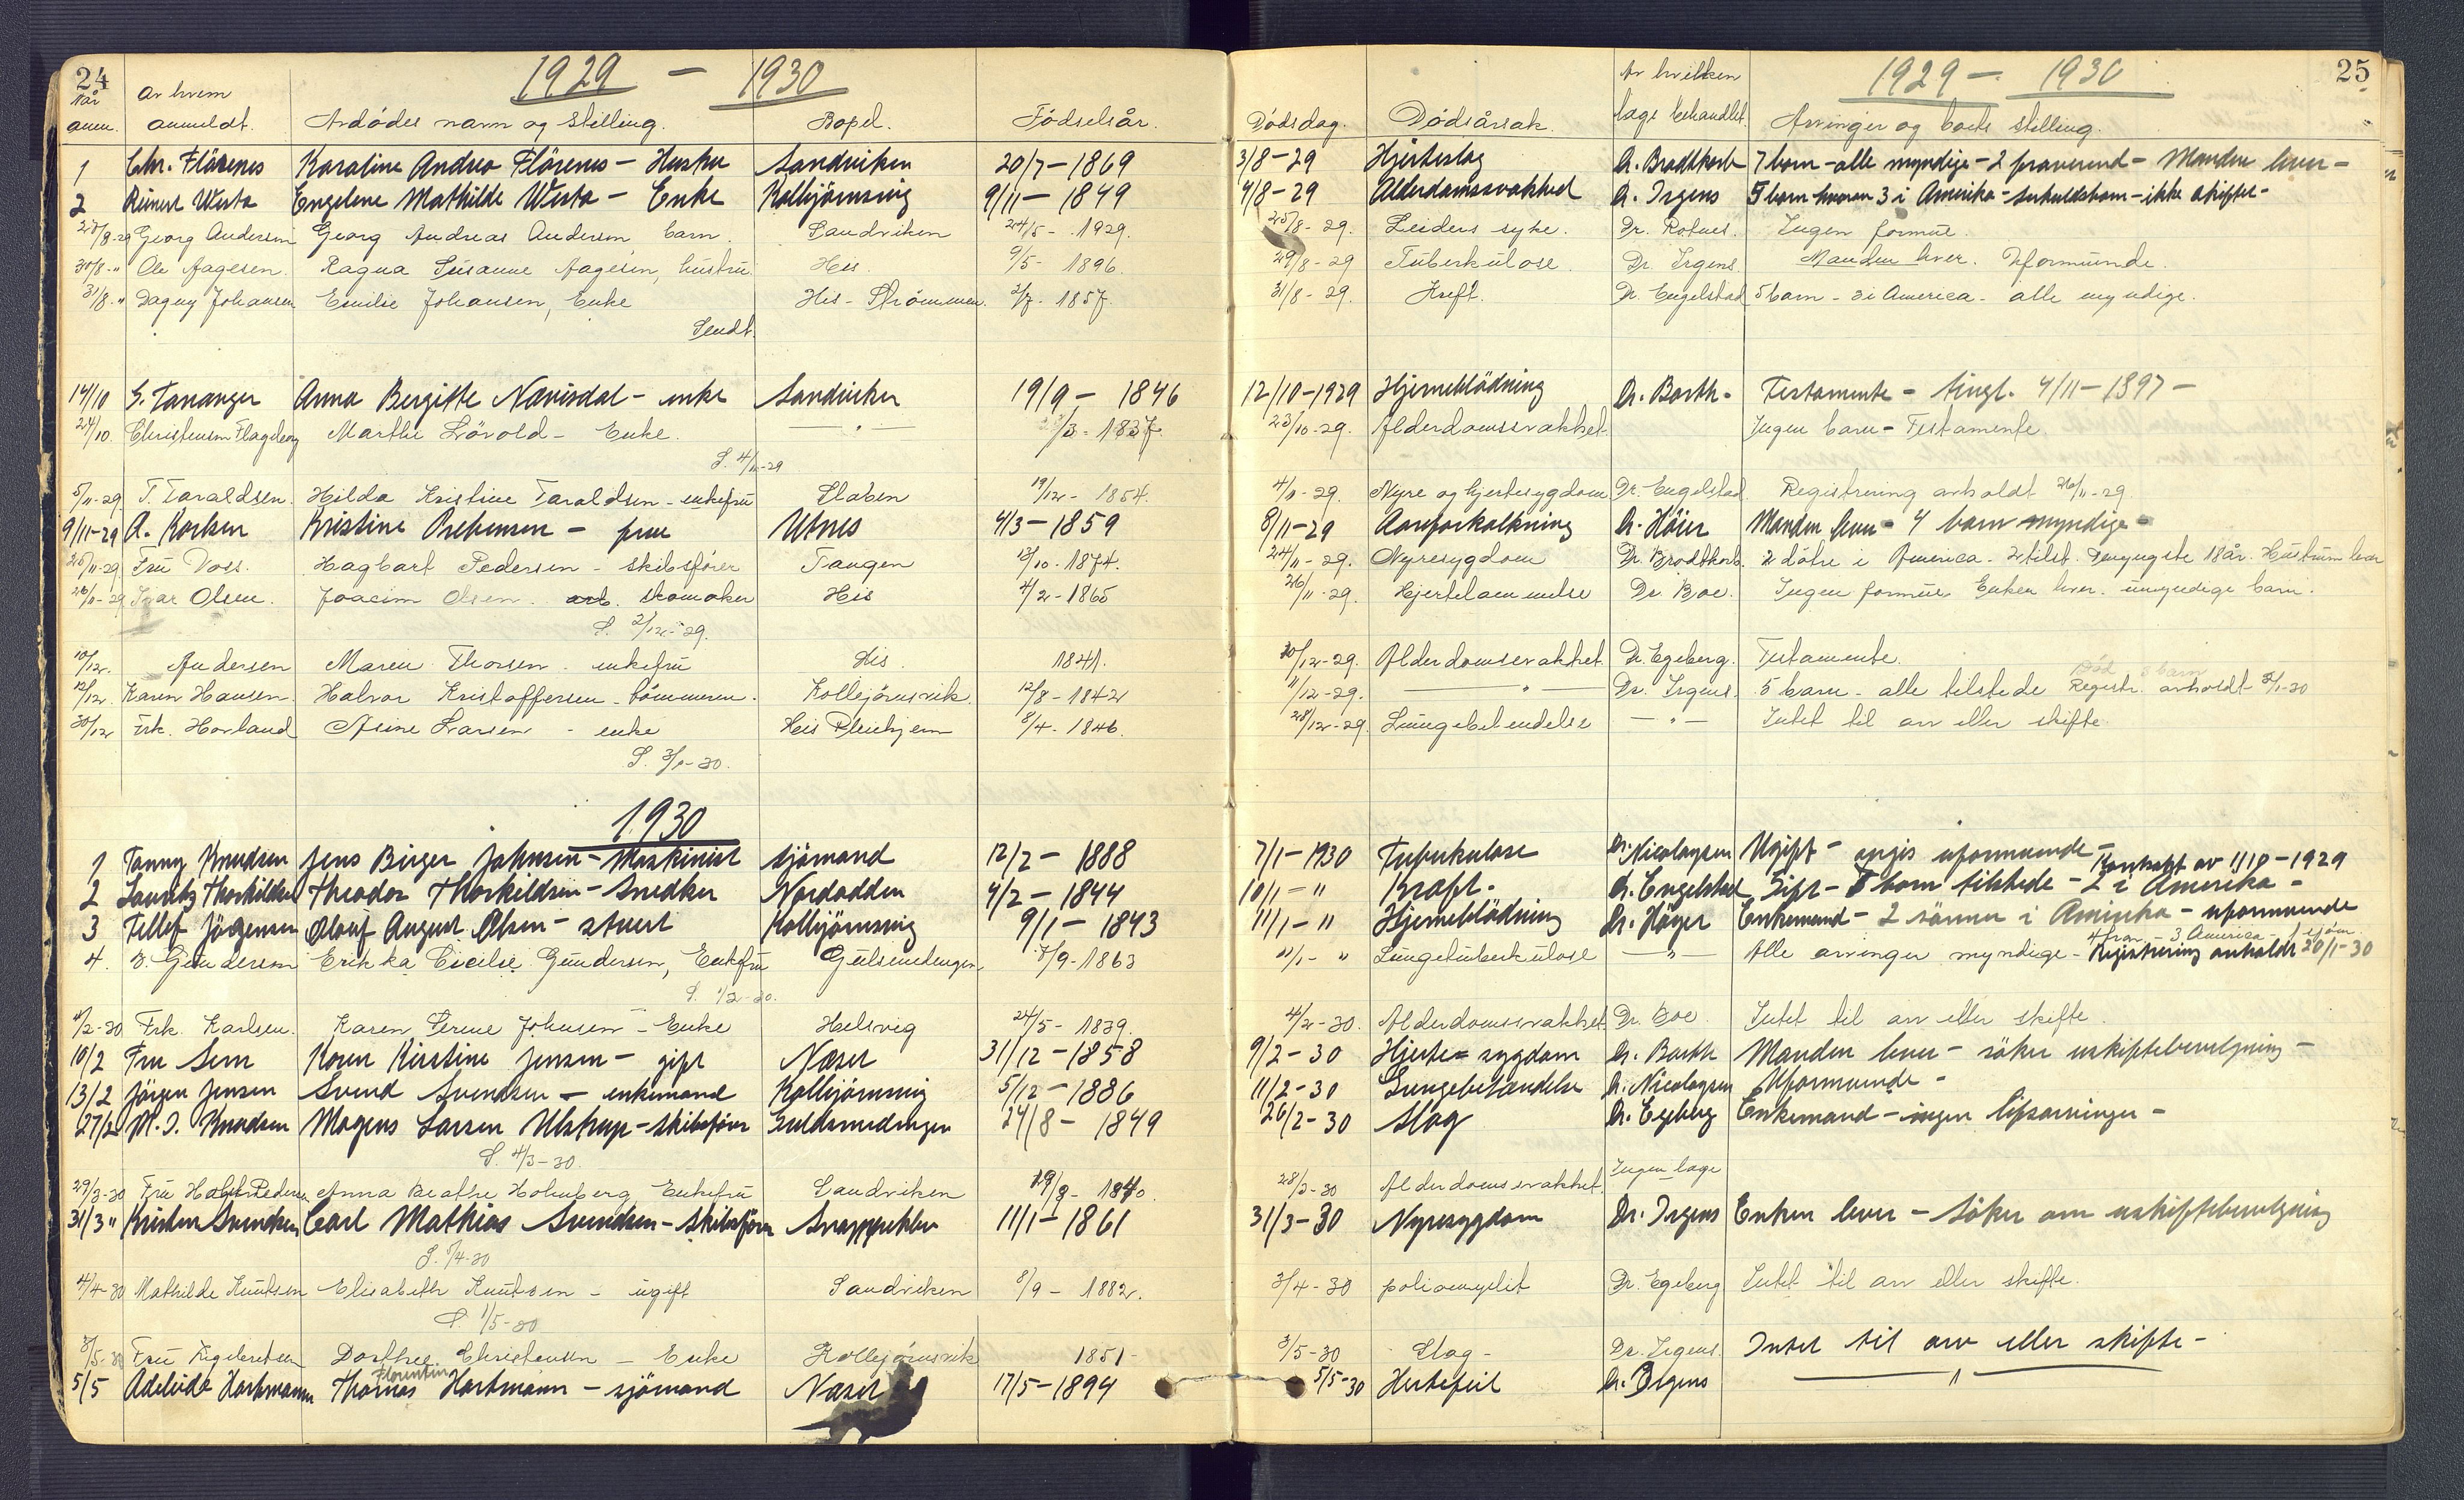 24 1929 – 1930
Når anm. Av hvem anmeldt. Avdödes navn og stilling. Bopel. Fødselsår.
1 Chr. Flörenes Karoline Andrea Flörenes – Hustru Sandviken 20/7 – 1869
2 Reinert Westa Engeline Mathilde Westa – Enke Kolbjörnsvig 9/11 – 1849
27/8-29 Georg Andersen Georg Andreas Andersen, barn. Sandviken 24/5 - 1929.
30/8 - " Ole Aagesen. Ragna Susanne Aagesen, hustru His. 9/5 - 1896.
31/8 - " Dagny Johansen Emilie Johansen, Enke His - Strømmen. 2/7 - 1857.
Sendt.
14/10 G. Tananger Anna Bergitte Nævisdal – enke Sandviken 19/9 – 1846
24/10. Christensen Flageborg Marthe Lövold – Enke. — " — /3 - 1837
S. 4/11-29
5/11-29 T. Taraldsen. Hilda Kristine Taraldsen – enkefru Staben 19/12 - 1854.
9/11-29 A. Torksen Kristine Prebensen – frue Utnes 4/3 – 1859
25/11-29 Fru Voss. Hagbart Pedersen – skibsfører Tangen 13/10 - 1874.
26/11-29 Ivar Olsen. Joacim Olsen. arb. skomaker His 4/2 - 1865
S. 2/12-29.
10/12. Andersen Maren Thorsen - enkefru His. 1841.
12/12. Karen Hansen. Halvor Kristoffersen – tömmerm. Kolbjörnsvik. 12/8 - 1842
30/12 Frk. Hovland Asine Larsen - enke His Pleiehjem 8/4 - 1846.
S. 3/1-30.
1930
1 Fanny Knudsen Jens Birger Johnsen – Maskinist sjömand 12/2 – 1888
2 Lauritz Thorkildsen Theodor Thorkildsen – Snedker Nordodden 4/2 – 1844
3 Tellef Jörgensen Olouf August Olsen – stuert Kolbjörnsvig 9/1 – 1843
4. B. Gundersen Erikka Cicilie Gundersen, Enkefru Gulsmedengen 7/9 - 1863
S. 1/2-30.
4/2-30 Frk. Karlsen. Karen Serine Johnsen – Enke Helsvig 24/5 - 1839.
10/2 Fru Sem Karen Kirstine Jensen – gift Næset 31/12 – 1858
13/2 Jörgen Jensen Svend Svendsen – enkemand Kolbjörnsvig 5/12 – 1886
27/2 M. J. Knudsen Mogens Larsen Ulstrup – skibsförer Guldsmedengen 24/8 – 1849
S. 4/3-30.
29/3-30 Fru Pedersen Anna Beathe Holmberg, Enkefru Sandviken 19/8 - 1840.
31/3 " Kristen Svendsen Carl Mathias Svendsen – Skibsförer Snappekilen 11/1 – 1861
S. 1/4-30
4/4-30 Mathilde Knutsen Elisabeth Knutsen – ugift Sandviken 8/9 – 1882.
S. 1/5-30
3/5-30 Fru Ingebretsen Dorthee Christensen – Enke Kolbjörnsvik 1851 -
Florentin
5/5 Adeleide Hartmann Thomas Hartmann – sjömand Næset 17/5 – 1894
25 1929 – 1930
Dödsdag. Dödsårsak. Av hvilken læge behandlet. Arvinger og boets stilling.
3/8 – 29 Hjerteslag Dr. Brodtkorb 7 barn – alle myndige – 2 fraværend – Manden lever –
4/8 – 29 Alderdomssvakhed Dr. Irgens 5 barn hvorav 3 i Amerika – – ikke skiftet –
25/8 - 29. Leiders syke. Dr. Rotnes. Ingen formue.
29/8 - 29 Tuberkulose. Dr. Irgens. Manden lever. Uformuende.
31/8 - 29. Kreft. Dr. Engelstad 5 barn – 3 i America – alle myndige.
12/10 – 1929 Hjerneblödning Dr. Barth – Testamente – tingl. 4/11 – 1897 –
23/10 - 29. Alderdomssvakhet Ingen barn – Testamente
4/11 - 29. Nyre og hjertesygdom Dr. Engelstad Registrering avholdt 26/11-29.
8/11 – 29 Aareforkalkning Dr. Höier Manden lever – 4 barn myndige –
24/11 - 29. Nyresygdom Dr. Brodtkorb. 2 dötre i America – 2 tilst. Den yngste 18 år. Hustrun lever
26/11 - 29. Hjertelammelse Dr. Boe. Ingen formue Enken lever. umyndige barn.
10/12-29. Alderdomssvakhet Dr. Egeberg. Testamente.
11/12-29. — " — Dr. Irgens. 5 barn – alle tilstede Registr. avholdt 3/1-30
28/12-29. Lungebetendelse — " — Intet til arv eller skifte.
7/1 – 1930 Tuberkulose Dr. Nicolaysen Ugift – opgis uformuende –
Kontrakt av 1/10 – 1929
10/1 – " Kræft – Dr. Engelstad Gift – 5 barn tilstede – 2 i Amerika –
11/1 – " Hjerneblödning Dr. Höyer Enkemand – 2 sönner i Amerika – uformuende
11/1 - " Lungetuberkulose — " — Alle arvinger myndige – Registrering avholdt 20/1-30
4/2-30. Alderdomssvakhet Dr. Boe. Intet til arv eller skifte.
9/2 – 30 Hjerte – sygdom Dr. Barth Manden lever – söker uskiftebevilgning –
11/2 – 30 Lungebetændelse Dr. Nicolaysen Uformuende –
26/2 – 30 Slag Dr. Egeberg Enkemand – ingen livsarvinger –
28/3-30 Alderdomssvakhet. Ingen læge
31/3 – 30 Nyresygdom Dr. Irgens Enken lever – Söker om uskiftebevilgning
3/4 - 30 poliomyelit Dr. Egeberg Intet til arv eller skifte.
3/5-30 Slag – Dr. Irgens. Intet til arv eller skifte –
5/5-30 Hertefeil Dr. Irgens — " —